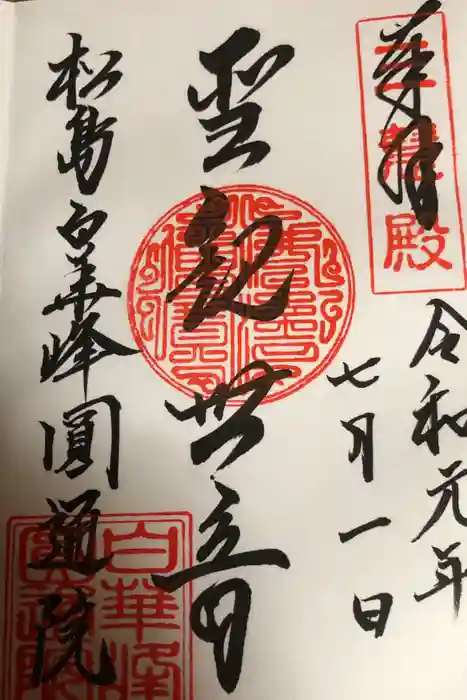 奉拝
三慧殿
令和元年
七月一日
聖観世音
松島白華峰圓通院
白華峰
圓通院